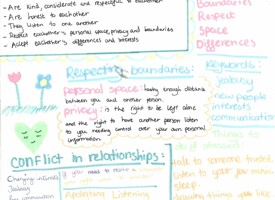 - Are kind, considerate and respectful to eachother
- Are honest to eachother
- They listen to one another
- Respect eachother's personal space, privacy and boundaries
- Accept eachother's differences and interests
Boundaries
Respect
Space
Differences
Respecting boundaries:
personal space: having enough distance
between you and another person.
privacy: is the right to be left alone
and the right to have another person listen
to you needing control over your own personal
information.
Keywords:
Jealousy
new people
interests
communication
Things to
Conflict in relationships:
Changing interests
Jealousy
If you need to
Apologising Listening
talk to someone trusted
listen to your music
sleep